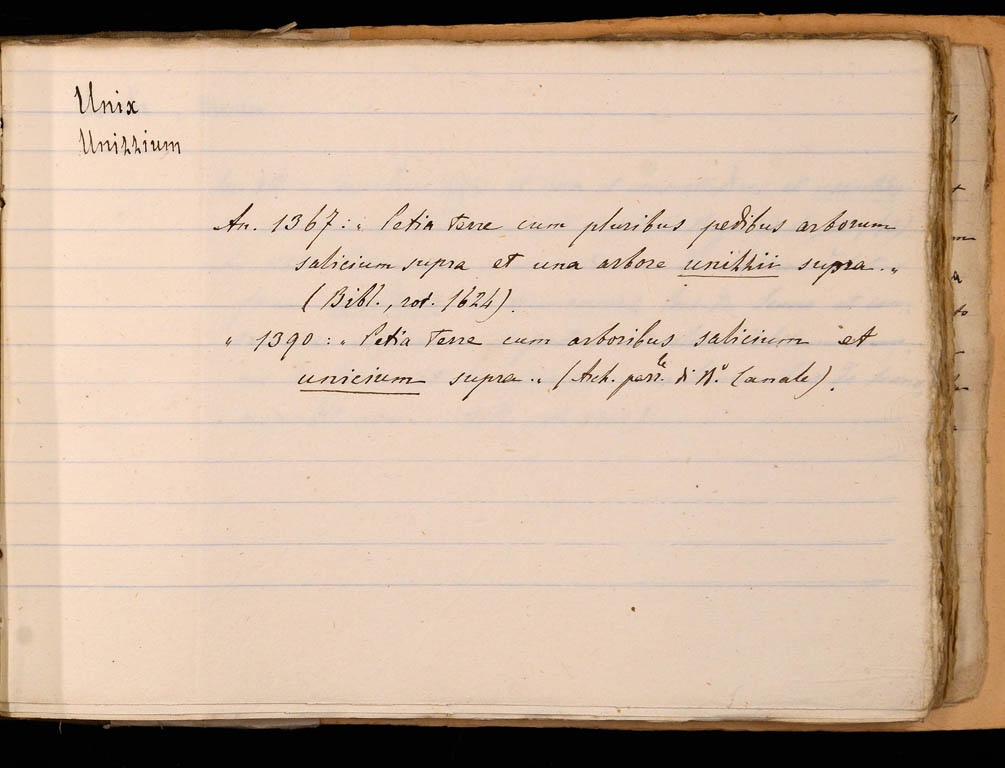 Unix
Unizzium
An. 1367: „ Petia terre cum pluribus pedibus arborum
salicium supra et una arbore unizzii supra. „
(Bibl., rot. 1624).
„ 1390: „ Petia terre cum arboribus salicium et
unicium supra. „ (Arch. parr.le di N.o Canale).